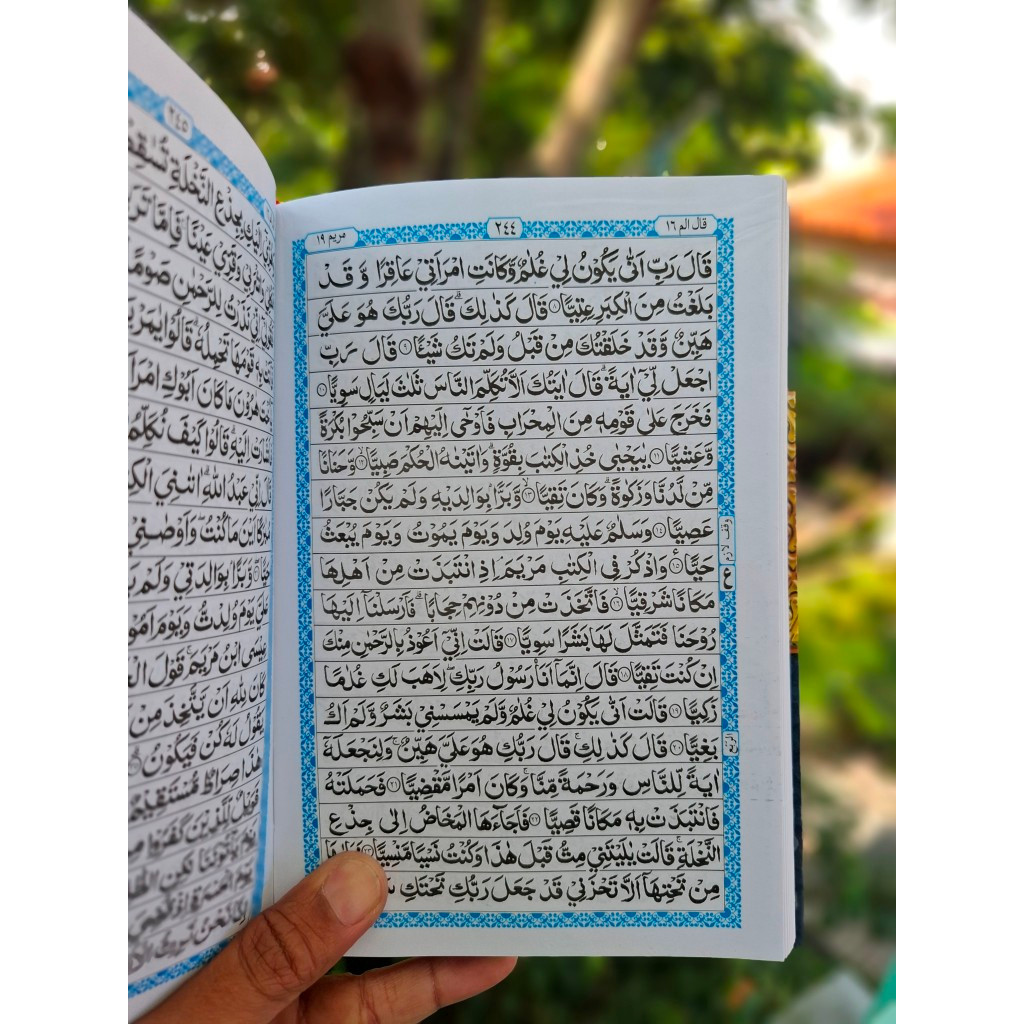 قال الم ١٦
٢٤٤
مريم ١٩
قَالَ رَبِّ اَنّٰى يَكُوْنُ لِيْ غُلٰمٌ وَّكَانَتِ امْرَاَتِيْ عَاقِرًا وَّ قَدْ
بَلَغْتُ مِنَ الْكِبَرِ عِتِيًّا ۝٨ قَالَ كَذٰلِكَ ۚ قَالَ رَبُّكَ هُوَ عَلَيَّ
هَيِّنٌ وَّقَدْ خَلَقْتُكَ مِنْ قَبْلُ وَلَمْ تَكُ شَيْـًٔا ۝٩ قَالَ رَبِّ
اجْعَلْ لِّيْٓ اٰيَةً ۗ قَالَ اٰيَتُكَ اَلَّا تُكَلِّمَ النَّاسَ ثَلٰثَ لَيَالٍ سَوِيًّا ۝١٠
فَخَرَجَ عَلٰى قَوْمِهٖ مِنَ الْمِحْرَابِ فَاَوْحٰٓى اِلَيْهِمْ اَنْ سَبِّحُوْا بُكْرَةً
وَّعَشِيًّا ۝١١ يٰيَحْيٰى خُذِ الْكِتٰبَ بِقُوَّةٍ ۗ وَاٰتَيْنٰهُ الْحُكْمَ صَبِيًّا ۝١٢ وَّحَنَانًا
مِّنْ لَّدُنَّا وَزَكٰوةً ۗ وَكَانَ تَقِيًّا ۝١٣ وَّبَرًّا بِوَالِدَيْهِ وَلَمْ يَكُنْ جَبَّارًا
عَصِيًّا ۝١٤ وَسَلٰمٌ عَلَيْهِ يَوْمَ وُلِدَ وَيَوْمَ يَمُوْتُ وَيَوْمَ يُبْعَثُ
حَيًّا ۝١٥ وَاذْكُرْ فِى الْكِتٰبِ مَرْيَمَ اِذِ انْتَبَذَتْ مِنْ اَهْلِهَا
مَكَانًا شَرْقِيًّا ۝١٦ فَاتَّخَذَتْ مِنْ دُوْنِهِمْ حِجَابًا ۗ فَاَرْسَلْنَآ اِلَيْهَا
رُوْحَنَا فَتَمَثَّلَ لَهَا بَشَرًا سَوِيًّا ۝١٧ قَالَتْ اِنِّيْٓ اَعُوْذُ بِالرَّحْمٰنِ مِنْكَ
اِنْ كُنْتَ تَقِيًّا ۝١٨ قَالَ اِنَّمَآ اَنَا۠ رَسُوْلُ رَبِّكِ ۖ لِاَهَبَ لَكِ غُلٰمًا
زَكِيًّا ۝١٩ قَالَتْ اَنّٰى يَكُوْنُ لِيْ غُلٰمٌ وَّلَمْ يَمْسَسْنِيْ بَشَرٌ وَّلَمْ اَكُ
بَغِيًّا ۝٢٠ قَالَ كَذٰلِكِ ۚ قَالَ رَبُّكِ هُوَ عَلَيَّ هَيِّنٌ ۚ وَلِنَجْعَلَهٗٓ
اٰيَةً لِّلنَّاسِ وَرَحْمَةً مِّنَّا ۚ وَكَانَ اَمْرًا مَّقْضِيًّا ۝٢١ فَحَمَلَتْهُ
فَانْتَبَذَتْ بِهٖ مَكَانًا قَصِيًّا ۝٢٢ فَاَجَآءَهَا الْمَخَاضُ اِلٰى جِذْعِ
النَّخْلَةِ ۚ قَالَتْ يٰلَيْتَنِيْ مِتُّ قَبْلَ هٰذَا وَكُنْتُ نَسْيًا مَّنْسِيًّا ۝٢٣
مِنْ تَحْتِهَآ اَلَّا تَحْزَنِيْ قَدْ جَعَلَ رَبُّكِ تَحْتَكِ
وقف لازم
ع
٢٤٥
بِجِذْعِ النَّخْلَةِ
وَقَرِّيْ عَيْنًا ۚ فَاِمَّا
نَذَرْتُ لِلرَّحْمٰنِ
بِهٖ قَوْمَهَا تَحْمِلُهٗ ۗ قَالُوْا
هٰرُوْنَ مَا كَانَ اَبُوْكِ
اِلَيْهِ ۗ قَالُوْا كَيْفَ نُكَلِّمُ
اِنِّيْ عَبْدُ اللّٰهِ ۗ اٰتٰىنِيَ
اَيْنَ مَا كُنْتُ ۖ
وَّبَرًّا بِوَالِدَتِيْ وَلَمْ
يَوْمَ وُلِدْتُّ وَيَوْمَ
ابْنُ مَرْيَمَ ۚ قَوْلَ
كَانَ لِلّٰهِ اَنْ يَّتَّخِذَ مِنْ
يَقُوْلُ لَهٗ كُنْ فَيَكُوْنُ
هٰذَا صِرَاطٌ مُّسْتَقِيْمٌ